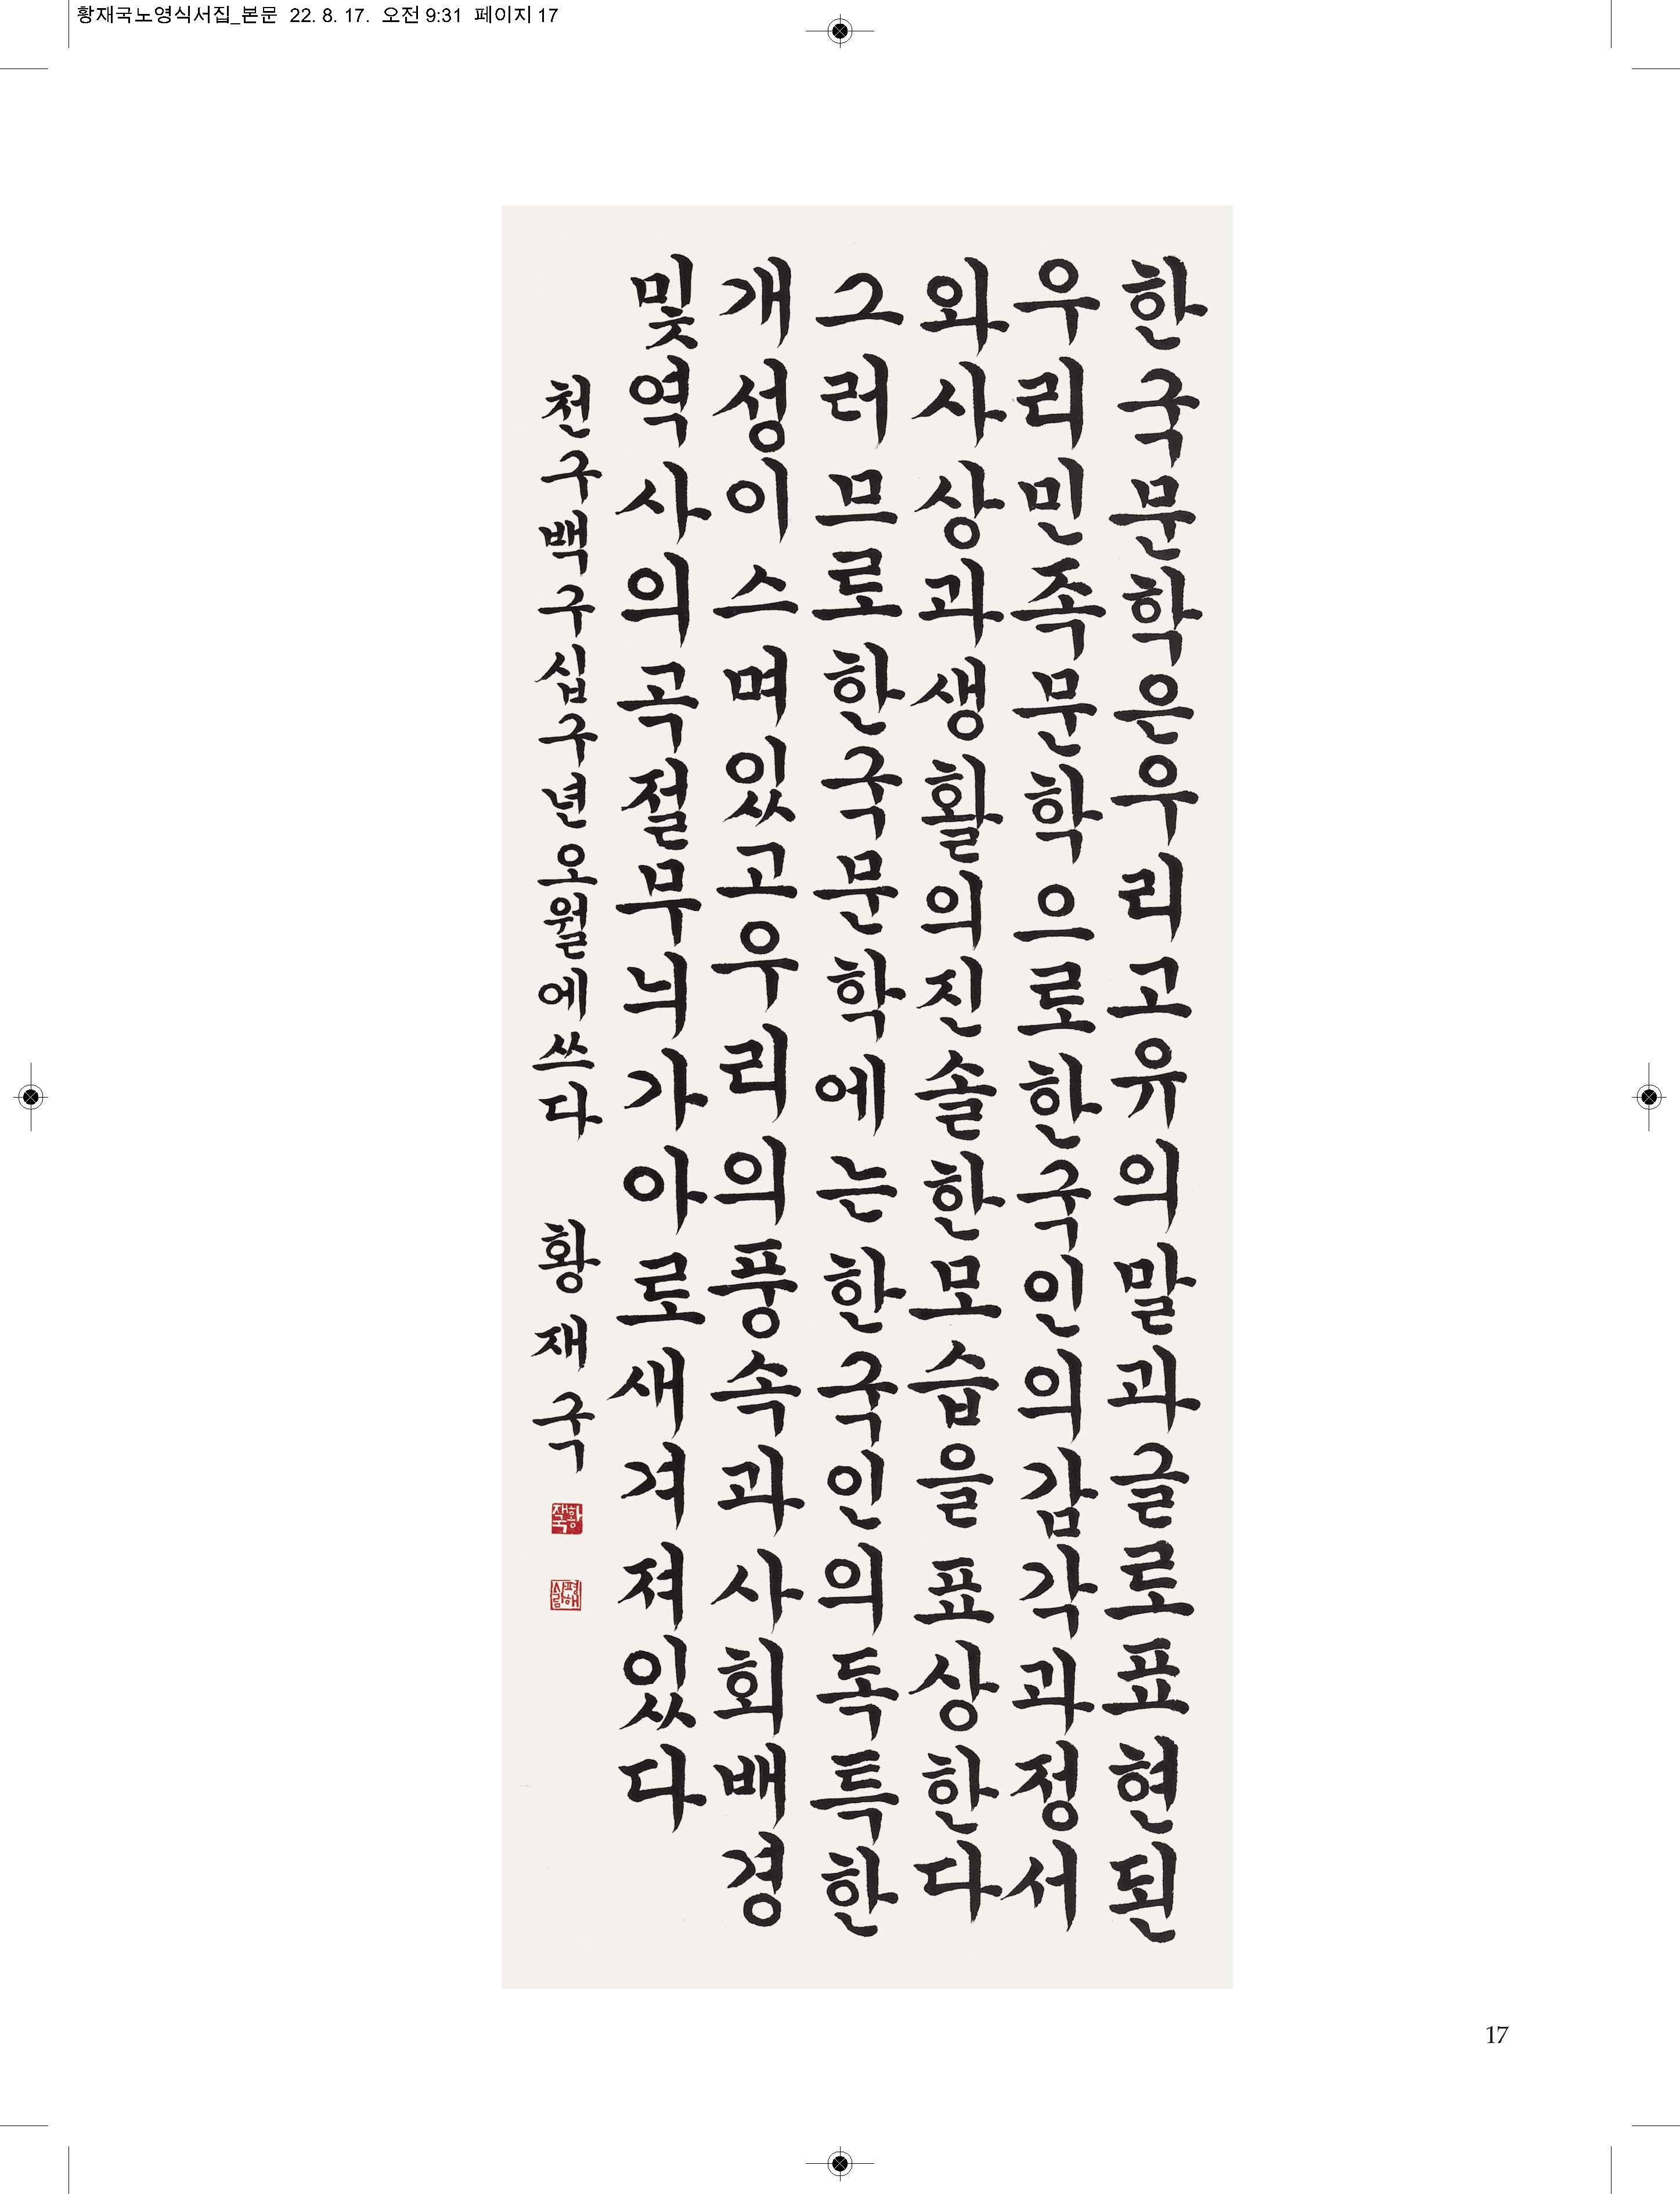 황재국노영식서집_본문 22. 8. 17. 오전 9:31 페이지 17
한국문학은우리고유의말과글로표현된
우리민족문학으로한국인의감각과정서
와사상과생활의진솔한모습을표상한다
그러므로한국문학에는한국인의독특한
개성이스며있고우리의풍속과사회배경
및역사의곡절무늬가아로새겨져있다
천구백구십구년오월에쓰다 황재국
황재국
평해사람
17